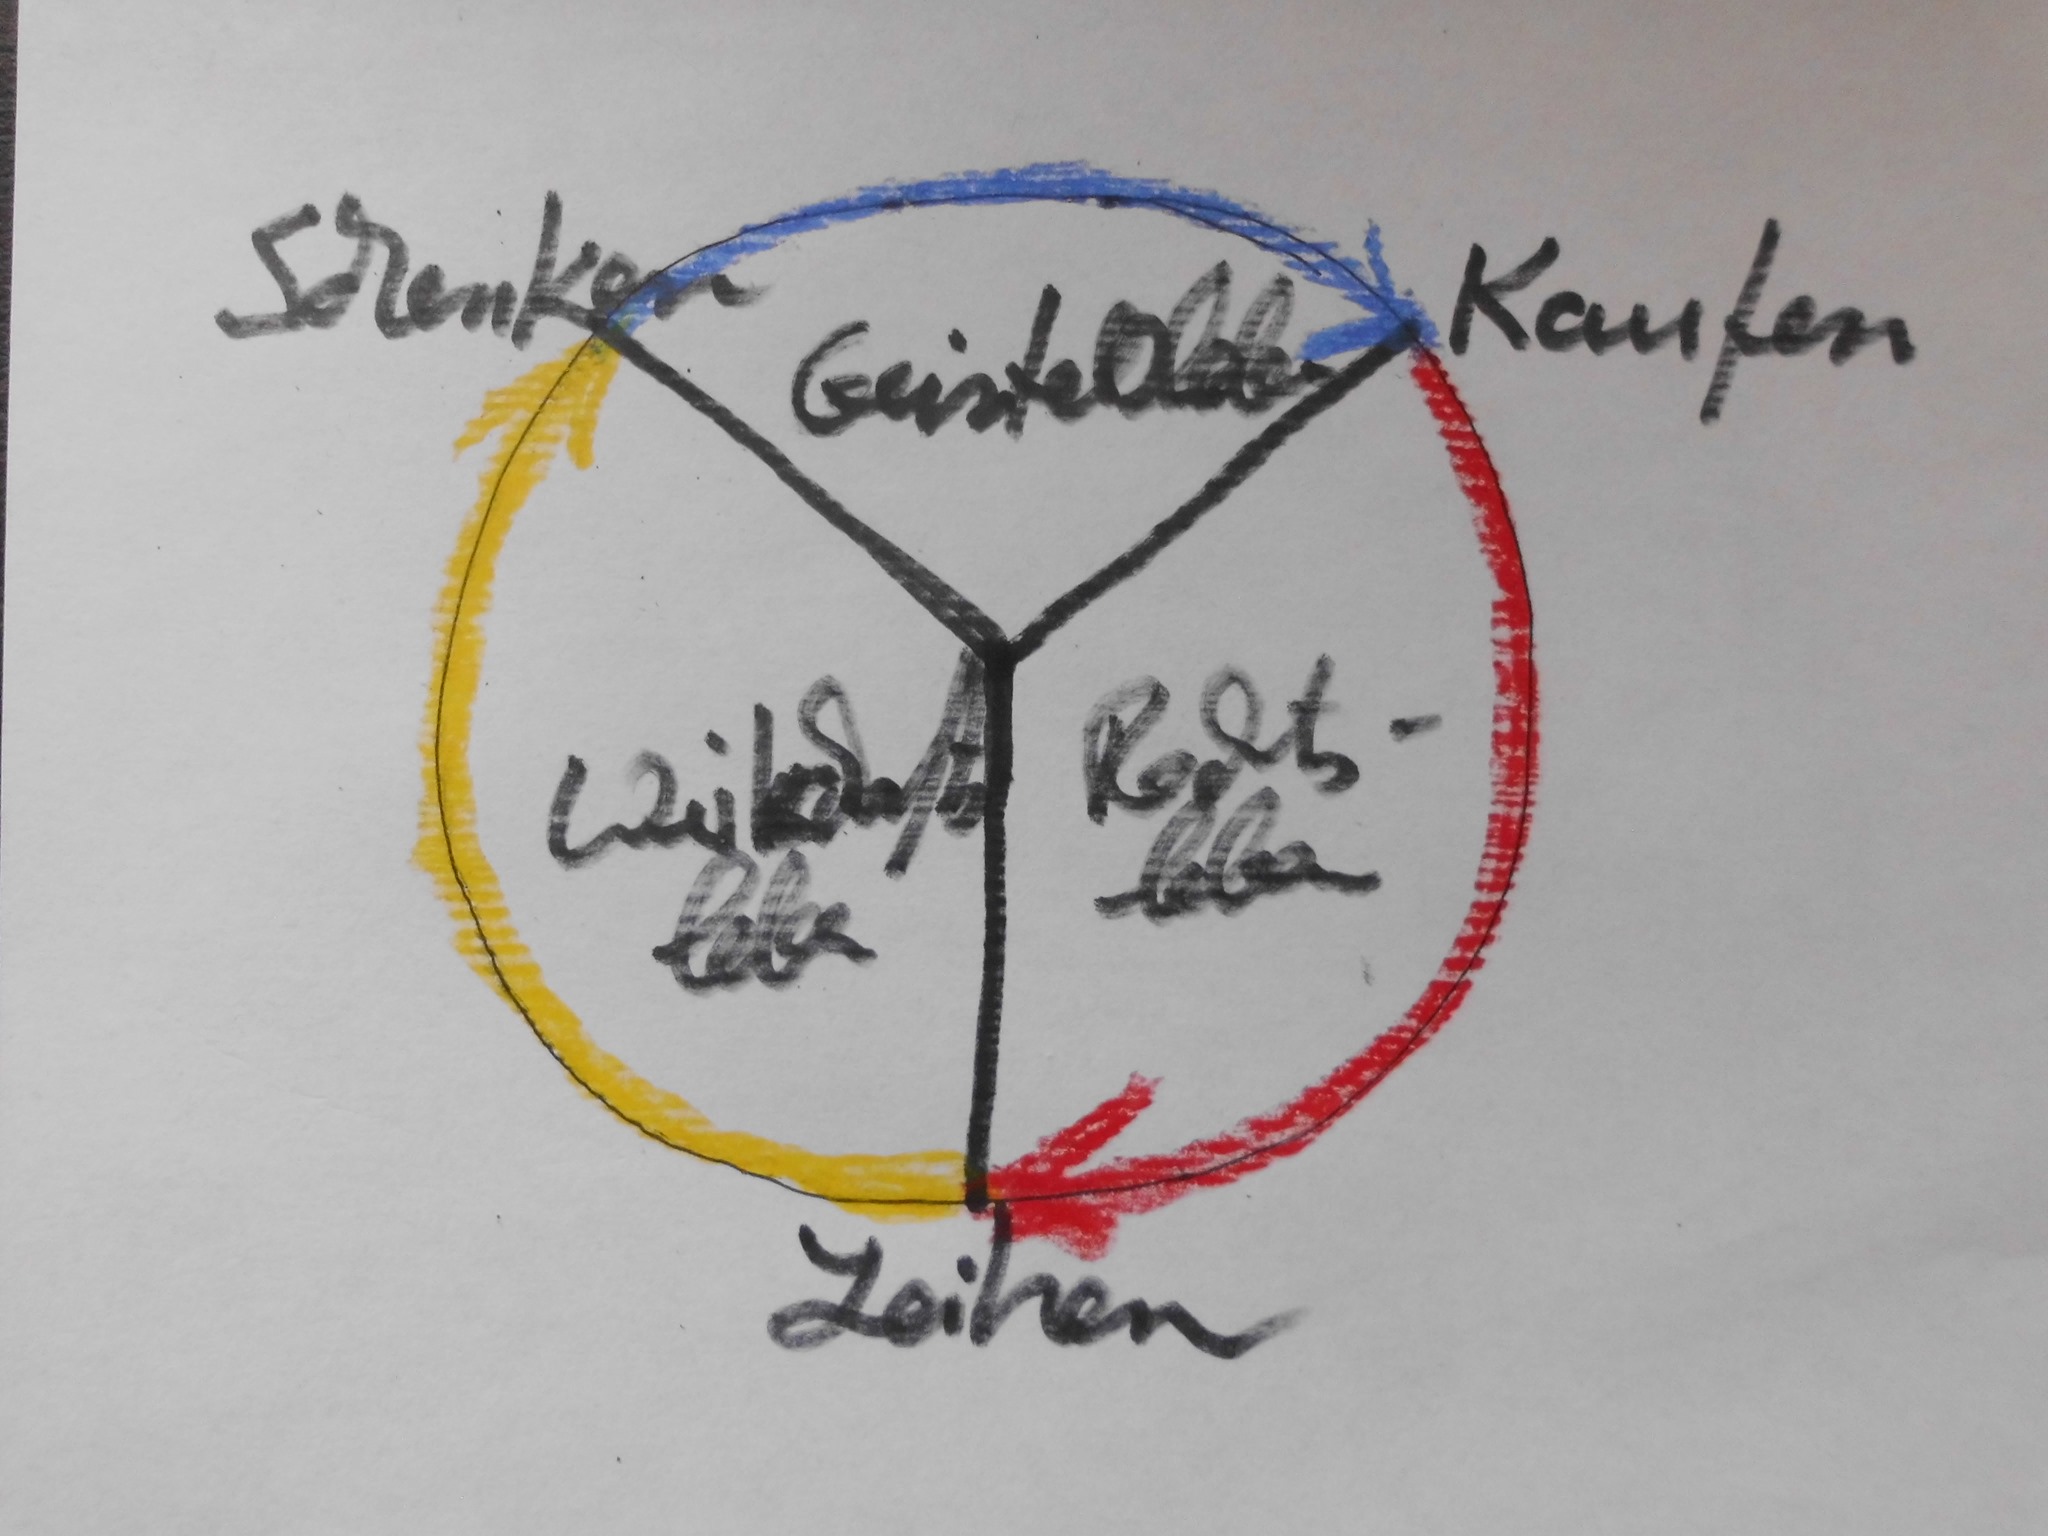 Schenken
Kaufen
Geistesleben
Wirtschafts
leben
Rechts-
leben
Leihen